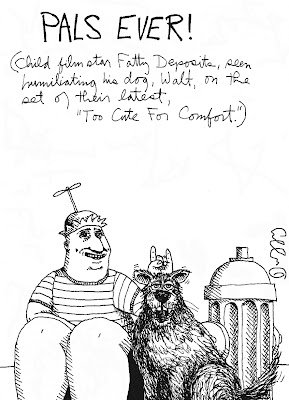 PALS EVER!
(Child film star Fatty Deposits, seen
humiliating his dog, Walt, on the
set of their latest,
"Too Cute For Comfort.")